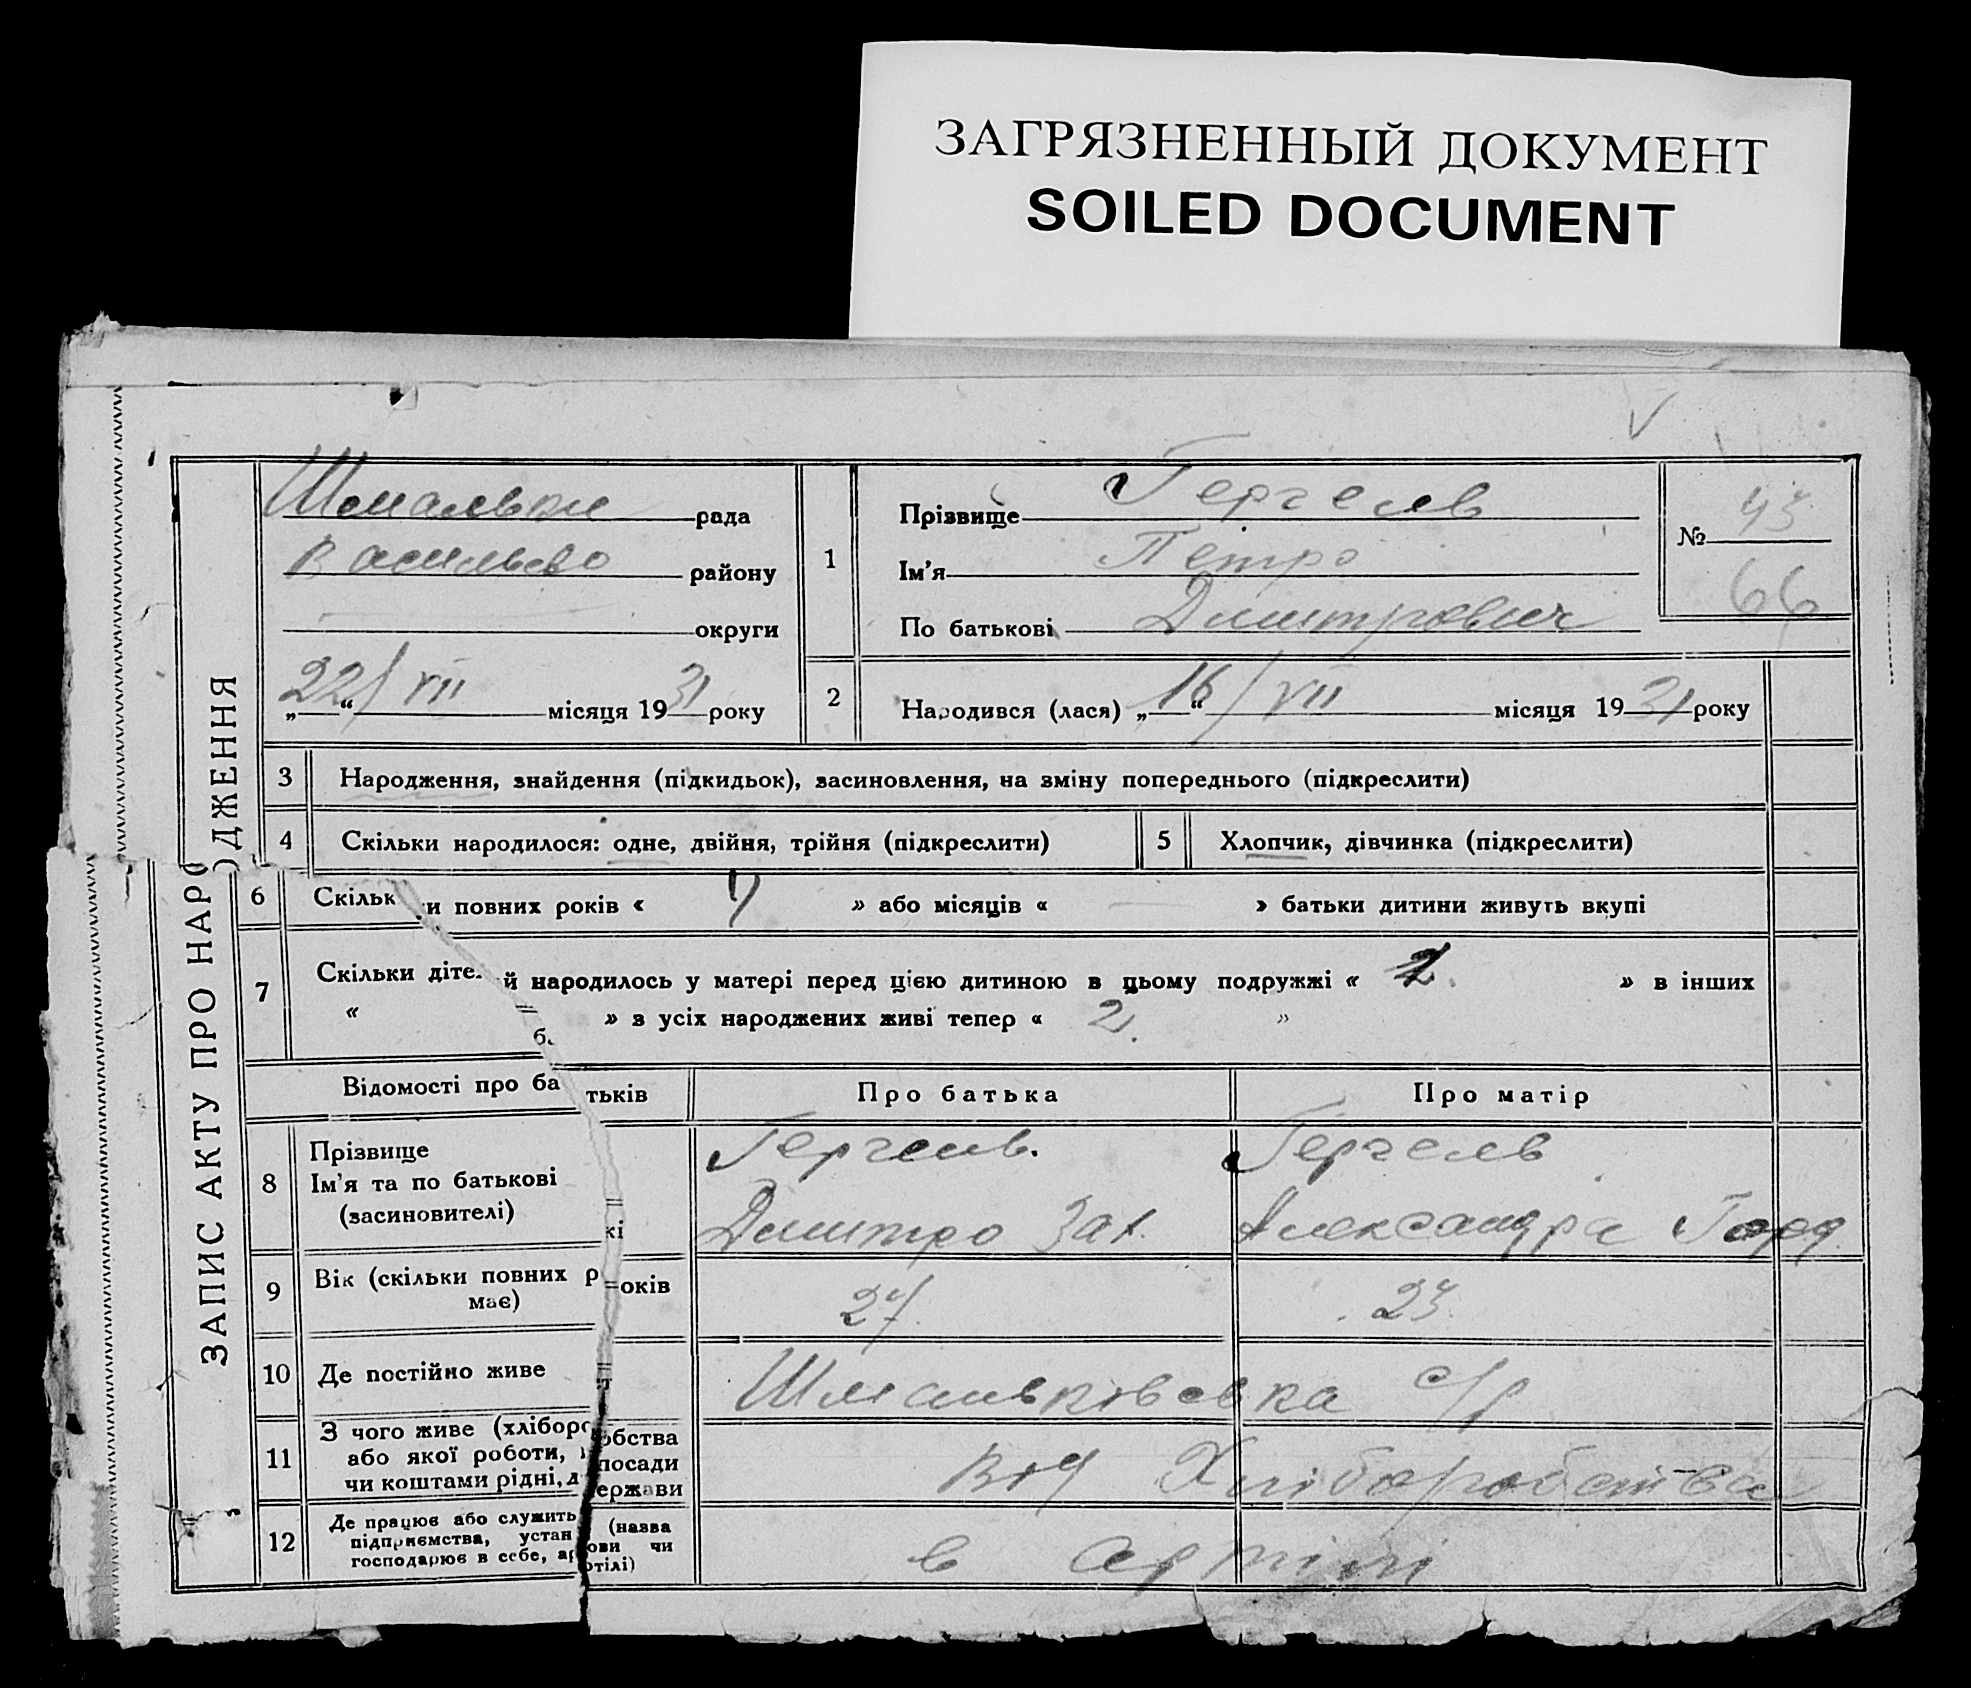 ЗАГРЯЗНЕННЫЙ ДОКУМЕНТ
SOILED DOCUMENT
ЗАПИС АКТУ ПРО НАРОДЖЕННЯ
рада
району
округи
„22“ VII місяця 1931 року
1
Прізвище Гергель
Ім’я Петро
По батькові Дмитрович
№ 43
66
2 Народився (лася) „16“ VII місяця 1931 року
3 Народження, знайдення (підкидьок), засиновлення, на зміну попереднього (підкреслити)
4 Скільки народилося: одне, двійня, трійня (підкреслити)
5 Хлопчик, дівчинка (підкреслити)
6 Скільк и повних років « » або місяців « — » батьки дитини живуть вкупі
7 Скільки дітей народилось у матері перед цією дитиною в цьому подружжі « 2 » в інших
« » з усіх народжених живі тепер « 2 »
Відомості про батьків
Про батька
Про матір
8 Прізвище
Ім’я та по батькові
(засиновителі)
Гергель
Дмитро Зах.
Гергель
Александра
9 Вік (скільки повних років
має)
27
23
10 Де постійно живе
Шмальковська с/р
11 З чого живе (хліборобства
або якої роботи, посади
чи коштами рідні, держави
від Хліборобства
12 Де працює або служить (назва
підприємства, установи чи
господарює в себе, артілі)
в артілі